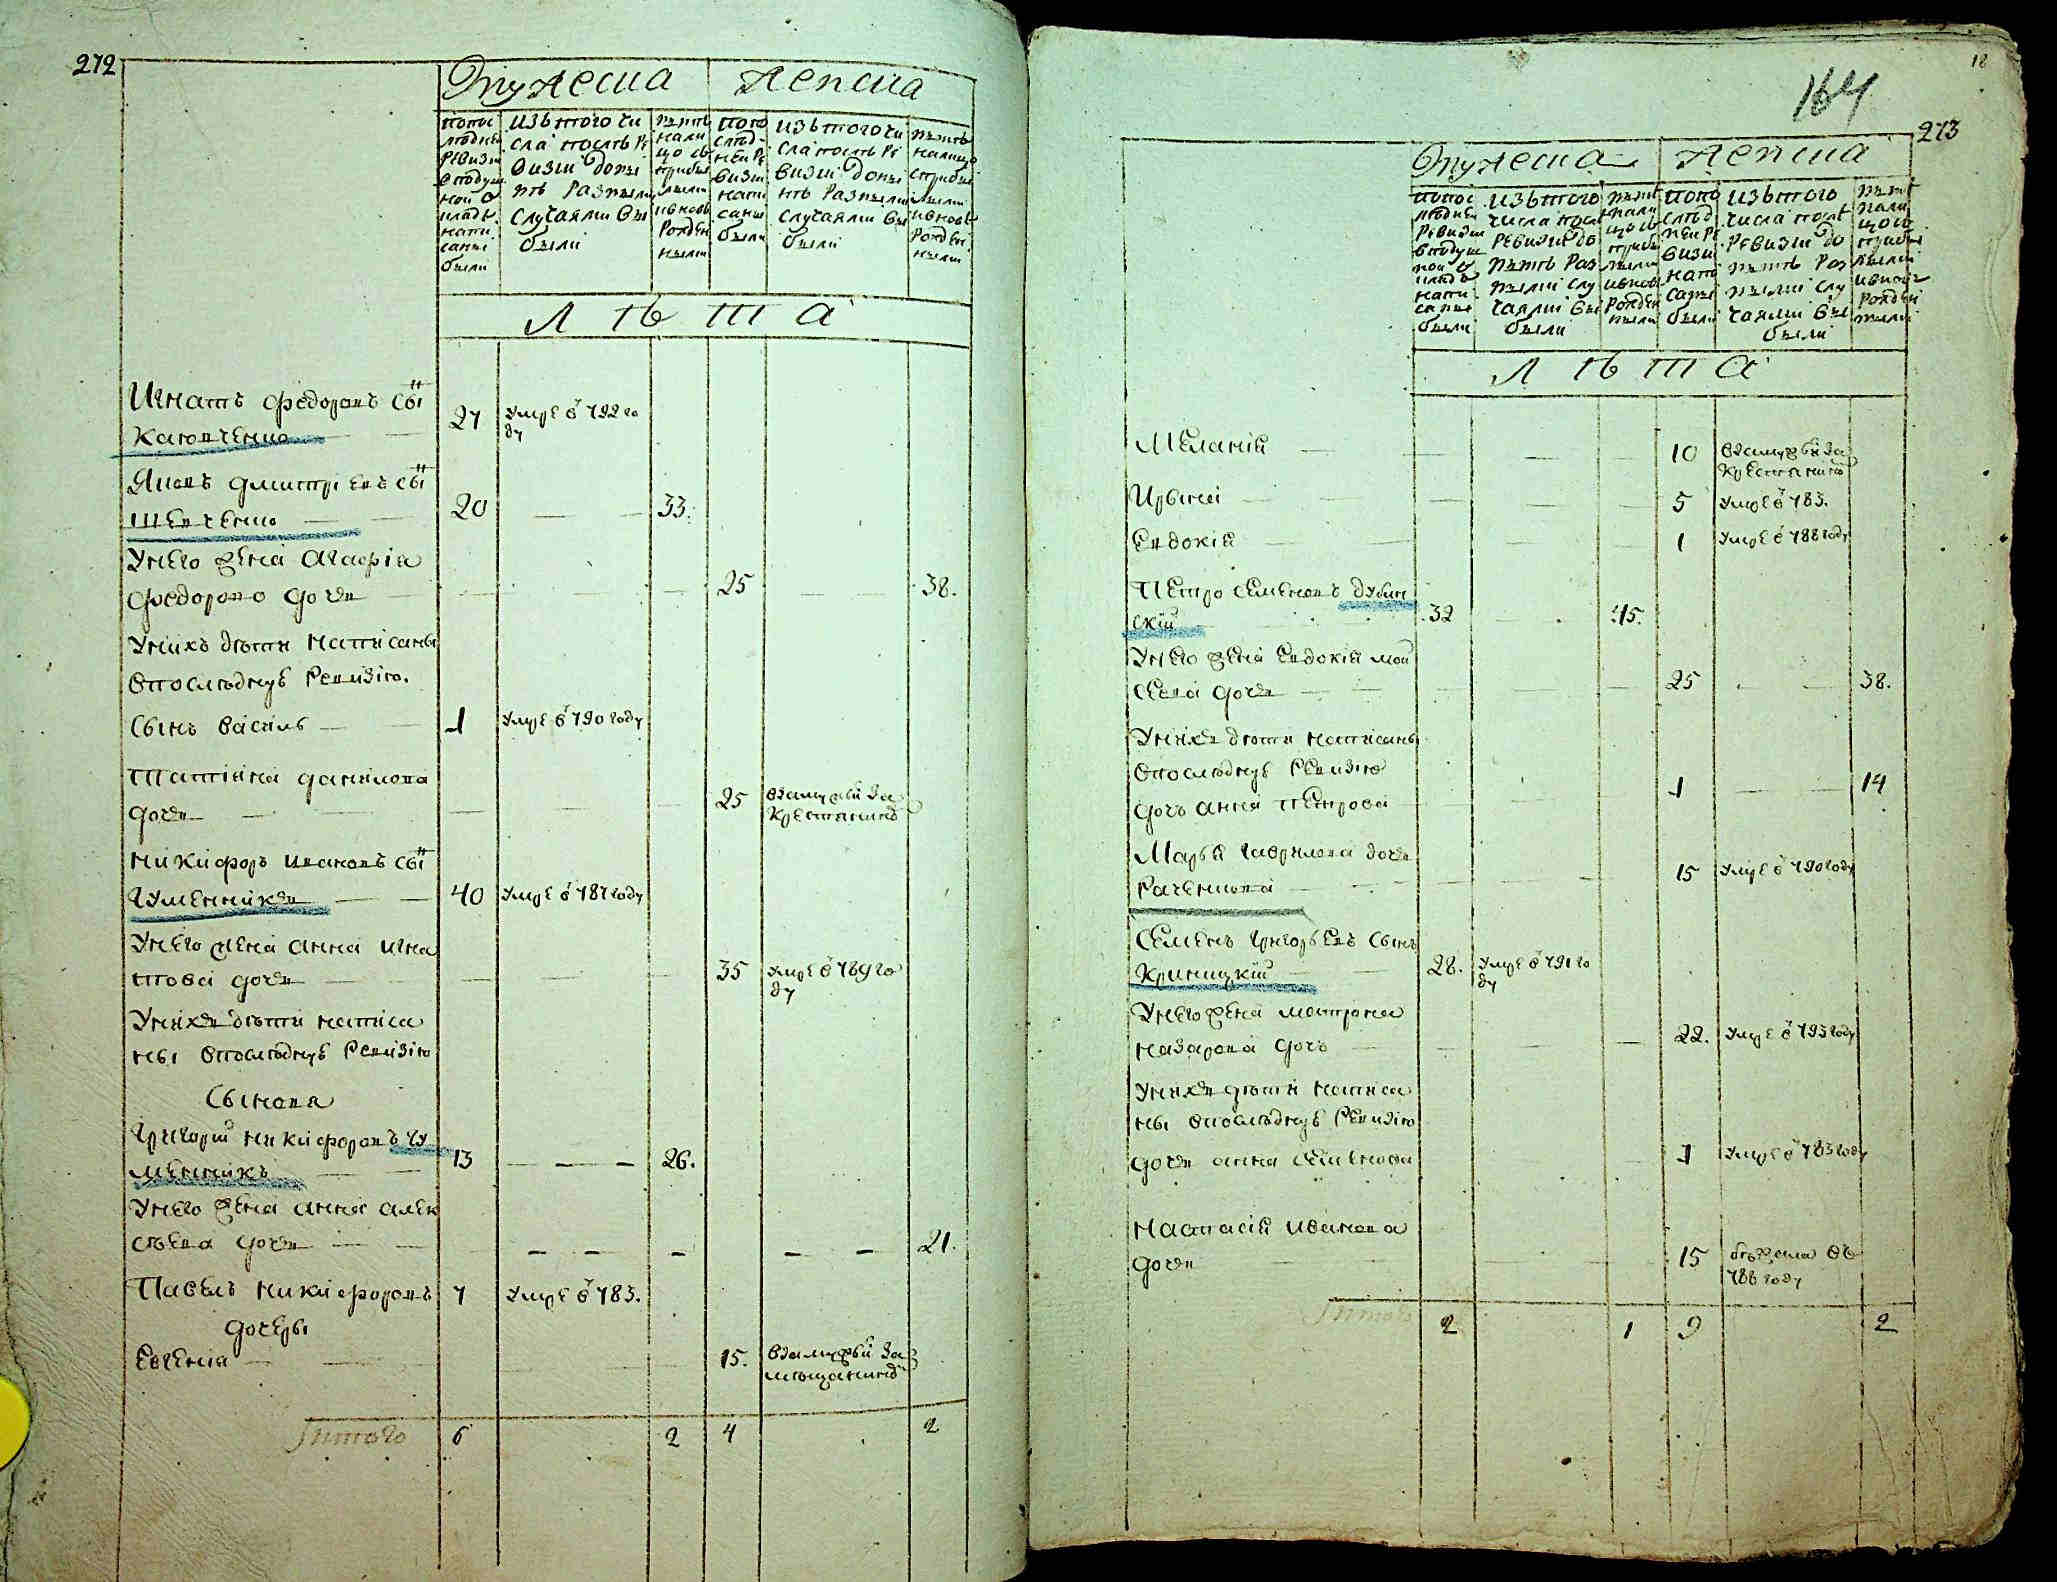 272
Мужеска Женска
Попос
лѣдней
Ревизіи
вподуш
ной о
кладъ
напи
саны
были
изътого чи
сла послѣ Ре
визіи доны
нѣ Разными
случаями вы
были
нынѣ
нали
цо съ
прибы
лыми
ивновь
рожден
ными
Попо
слѣд
ней Ре
визіи
напи
саны
были
изътого чи
сла послѣ Ре
визіи доны
нѣ Разными
случаями вы
были
нынѣ
налицо
сприбы
лыми
ивновь
рожден
ными
Л Ѣ Т А
Игнатъ Федоровъ Сынъ 27 Умре в 792 го
ду
Яковъ Дмитріевъ Сынъ
Шевченко 20 33.
Унего жена Агафія
Федорова Дочь 25 38.
Унихъ дѣти написаны
впослѣднуѣ Ревизію.
Сынъ Василь 1 Умре в 790 году
Татіяна Данилова
Дочь 25 взамужѣй за
Крестяниномъ
Никифоръ Ивановъ Сынъ
Гуменникъ 40 Умре в 787 году
Унего жена Анна Игна
това Дочь 35 Умре в 789 го
ду
Унихъ дѣти написа
ны впослѣднуѣ Ревизію
Сынова
Григорій Никифоровъ Гу
менникъ 13 26.
Унего жена Анна Алек
сѣева Дочь 21.
Павелъ Никифоровъ 7 Умре в 783.
Дочеры
Евгенія 15. взамужѣй за
мѣщаниномъ
Итого 6 2 4 2
18
164
273
Мужеска Женска
Попос
лѣдней
Ревизіи
вподуш
ной о
кладъ
напи
саны
были
изътого
числа послѣ
Ревизіи до
нынѣ Раз
ными слу
чаями вы
были
нынѣ
нали
цо съ
прибы
лыми
ивновь
рожден
ными
Попо
слѣд
ней Ре
визіи
напи
саны
были
изътого
числа послѣ
Ревизіи до
нынѣ Раз
ными слу
чаями вы
были
нынѣ
нали
цо съ
прибы
лыми
ивновь
рожден
ными
Л Ѣ Т А
Меланія 10 взамужѣй за
Крестяниномъ
Ирына 5 Умре в 783.
Евдокія 1 Умре в 788 году
Петро Семеновъ Дубин
скій 32 45.
Унего жена Евдокія Мой
сеева Дочь 25 38.
Унихъ дѣти написаны
впослѣднуѣ Ревизію
Дочь Анна Петрова 1 14
Марья Гаврилова дочь
15 Умре в 790 году
Семенъ Григорьевъ Сынъ
Криницкій 28. Умре в 791 го
ду
Унего жена Матрона
Назарова Дочь 22. Умре в 793 году
Унихъ дѣти написа
ны впослѣднуѣ Ревизію
Дочь Анна Семенова 1 Умре в 783 году
Настасія Иванова
Дочь 15 бѣжала въ
788 году
Итого 2 1 9 2